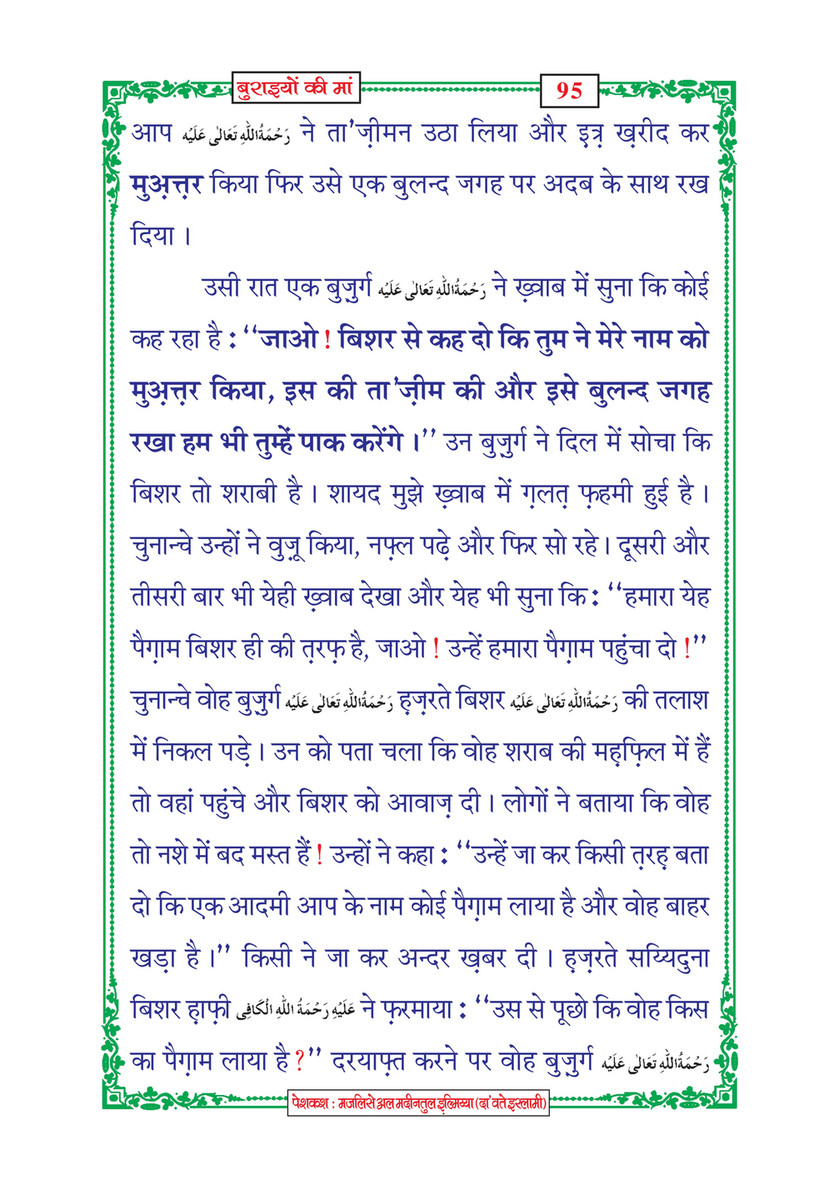 बुराइयों की मां
95
आप رَحْمَةُاللّٰهِ تَعَالٰى عَلَيْه ने ता'ज़ीमन उठा लिया और इत्र ख़रीद कर
मुअ़त्त़र किया फिर उसे एक बुलन्द जगह पर अदब के साथ रख
दिया ।
उसी रात एक बुज़ुर्ग رَحْمَةُاللّٰهِ تَعَالٰى عَلَيْه ने ख़्वाब में सुना कि कोई
कह रहा है : ‘‘जाओ ! बिशर से कह दो कि तुम ने मेरे नाम को
मुअ़त्त़र किया, इस की ता'ज़ीम की और इसे बुलन्द जगह
रखा हम भी तुम्हें पाक करेंगे ।’’ उन बुज़ुर्ग ने दिल में सोचा कि
बिशर तो शराबी है । शायद मुझे ख़्वाब में ग़लत़ फ़हमी हुई है ।
चुनान्चे उन्हों ने वुज़ू किया, नफ़्ल पढ़े और फिर सो रहे । दूसरी और
तीसरी बार भी येही ख़्वाब देखा और येह भी सुना कि : ‘‘हमारा येह
पैग़ाम बिशर ही की त़रफ़ है, जाओ ! उन्हें हमारा पैग़ाम पहुंचा दो !’’
चुनान्चे वोह बुज़ुर्ग رَحْمَةُاللّٰهِ تَعَالٰى عَلَيْه ह़ज़रते बिशर رَحْمَةُاللّٰهِ تَعَالٰى عَلَيْه की तलाश
में निकल पड़े । उन को पता चला कि वोह शराब की मह़फ़िल में हैं
तो वहां पहुंचे और बिशर को आवाज़ दी । लोगों ने बताया कि वोह
तो नशे में बद मस्त हैं ! उन्हों ने कहा : ‘‘उन्हें जा कर किसी त़रह़ बता
दो कि एक आदमी आप के नाम कोई पैग़ाम लाया है और वोह बाहर
खड़ा है ।’’ किसी ने जा कर अन्दर ख़बर दी । ह़ज़रते सय्यिदुना
बिशर ह़ाफ़ी عَلَيْهِ رَحْمَةُ اللّٰهِ الْكَافِى ने फ़रमाया : ‘‘उस से पूछो कि वोह किस
का पैग़ाम लाया है ?’’ दरयाफ्त करने पर वोह बुज़ुर्ग رَحْمَةُاللّٰهِ تَعَالٰى عَلَيْه
पेशकश : मजलिसे अल मदीनतुल इल्मिय्या (दा'वते इस्लामी)